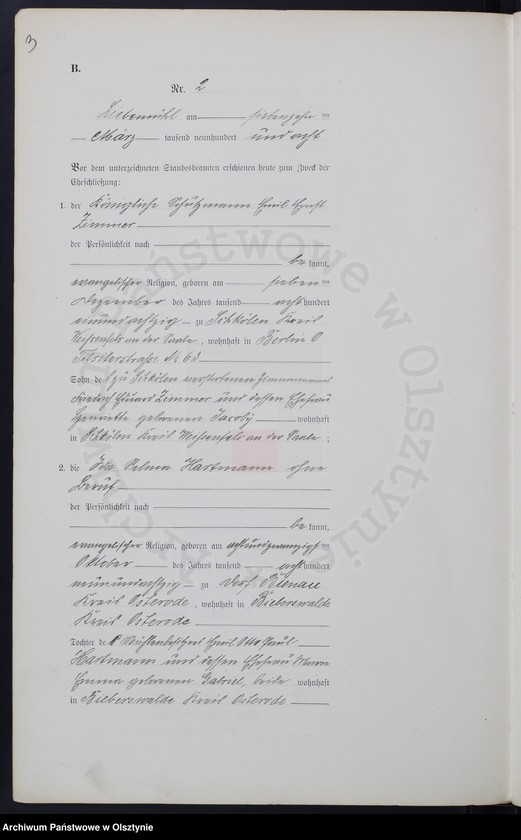 3
B.
Nr. 2
Liebemühl am siebenzehn ten
März tausend neunhundert und acht
Vor dem unterzeichneten Standesbeamten erschienen heute zum Zweck der
Eheschließung:
1. der Königliche Schutzmann Emil Ernst
Zimmer
der Persönlichkeit nach
be kannt,
evangelischer Religion, geboren am sieben ten
Dezember des Jahres tausend acht hundert
einundachtzig zu Stößen Kreis
Weißenfels an der Saale, wohnhaft in Berlin O
Tilsiterstraße No 63
Sohn des zu verstorbenen Zimmermanns
Friedrich Eduard Zimmer und dessen Ehefrau
Henriette geborenen Jacobj wohnhaft
in Kreis Weißenfels an der Saale;
2. die Ida Selma Hartmann ohne
Beruf
der Persönlichkeit nach
be kannt,
evangelischer Religion, geboren am achtundzwanzigsten
Oktober des Jahres tausend acht hundert
neunundachtzig zu Dorf Bienau
Kreis Osterode, wohnhaft in Bieberswalde
Kreis Osterode
Tochter des Mühlenbesitzers Emil Otto Paul
Hartmann und dessen Ehefrau
Emma geborenen Gabriel, beide wohnhaft
in Bieberswalde Kreis Osterode
Archiwum Państwowe w Olsztynie
Archiwum Państwowe w Olsztynie